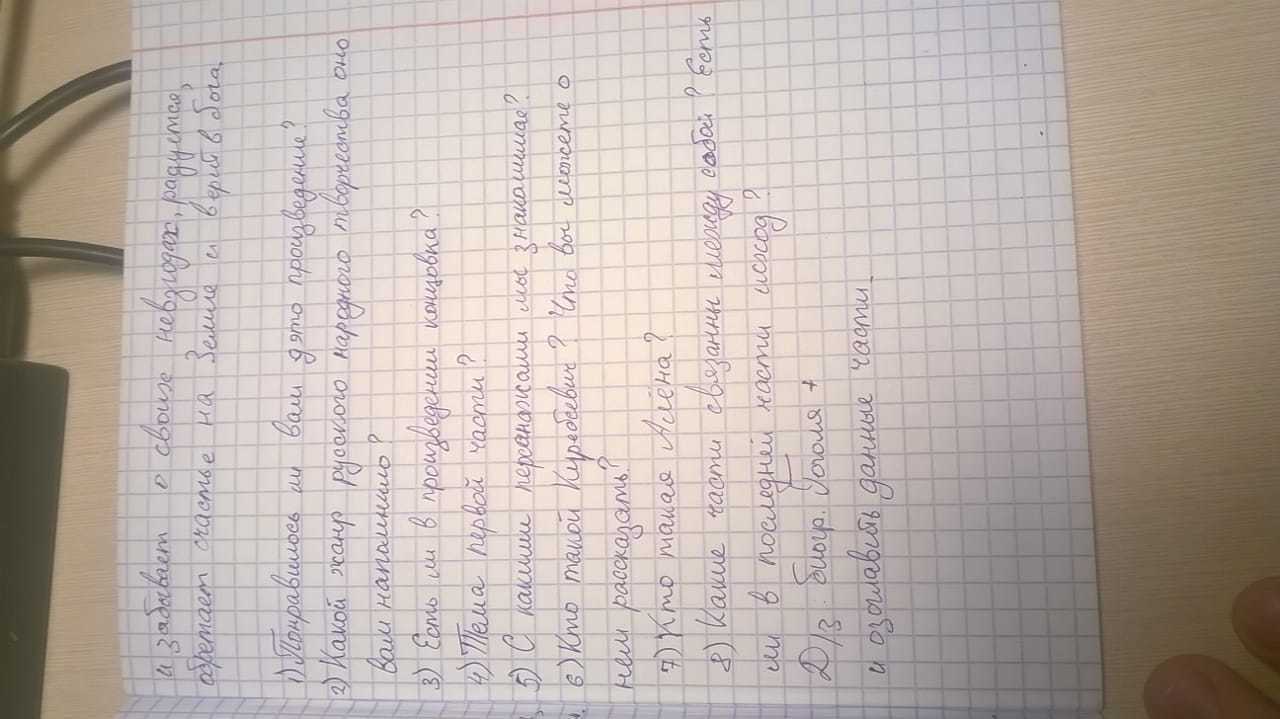 и забывает о своих невзгодах, радуется,
обретает счастье на Земле и верит в бога.
1) Понравилось ли вам это произведение?
2) Какой жанр русского народного творчества оно
вам напомнило?
3) Есть ли в произведении концовка?
4) Тема первой части?
5) С какими персонжами мы знакомимся?
6) Кто такой Кирибеевич? Что вы можете о
нем рассказать?
7) Кто такая Алёна?
8) Какие части связанны между собой? Есть
ли в последней части исход?
Д/з: биогр. Гоголя +
и озоглавить данные части.